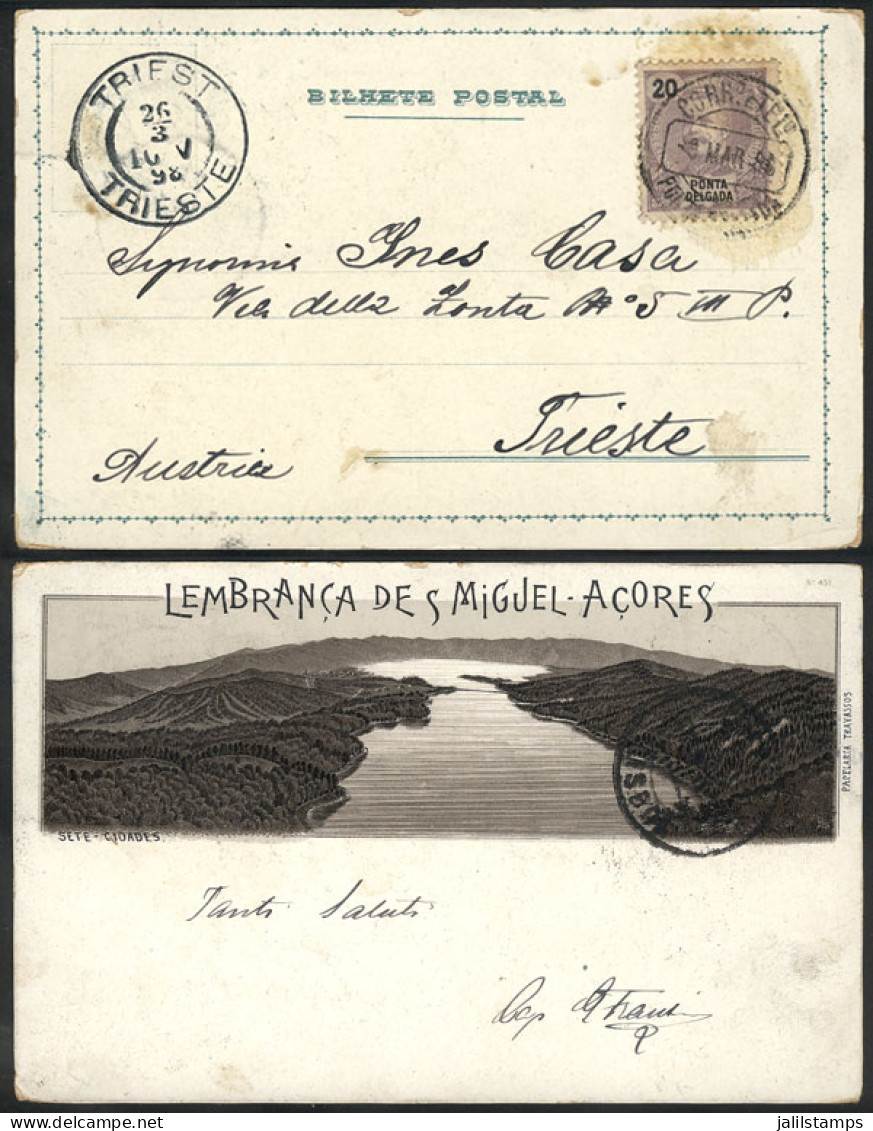 TRIEST
26
3
10 V
98
TRIESTE
BILHETE POSTAL
20
CORR. E TEL.
MAR 98
PONTA
DELGADA
Ines Casa
Via della Zonta No 5 III P.
Trieste
Austria
LEMBRANÇA DE S MIGUEL-AÇORES
No 451
PAPELARIA TRAVASSOS
SETE-CIDADES.
Tanti Saluti
Cap
jalilstamps